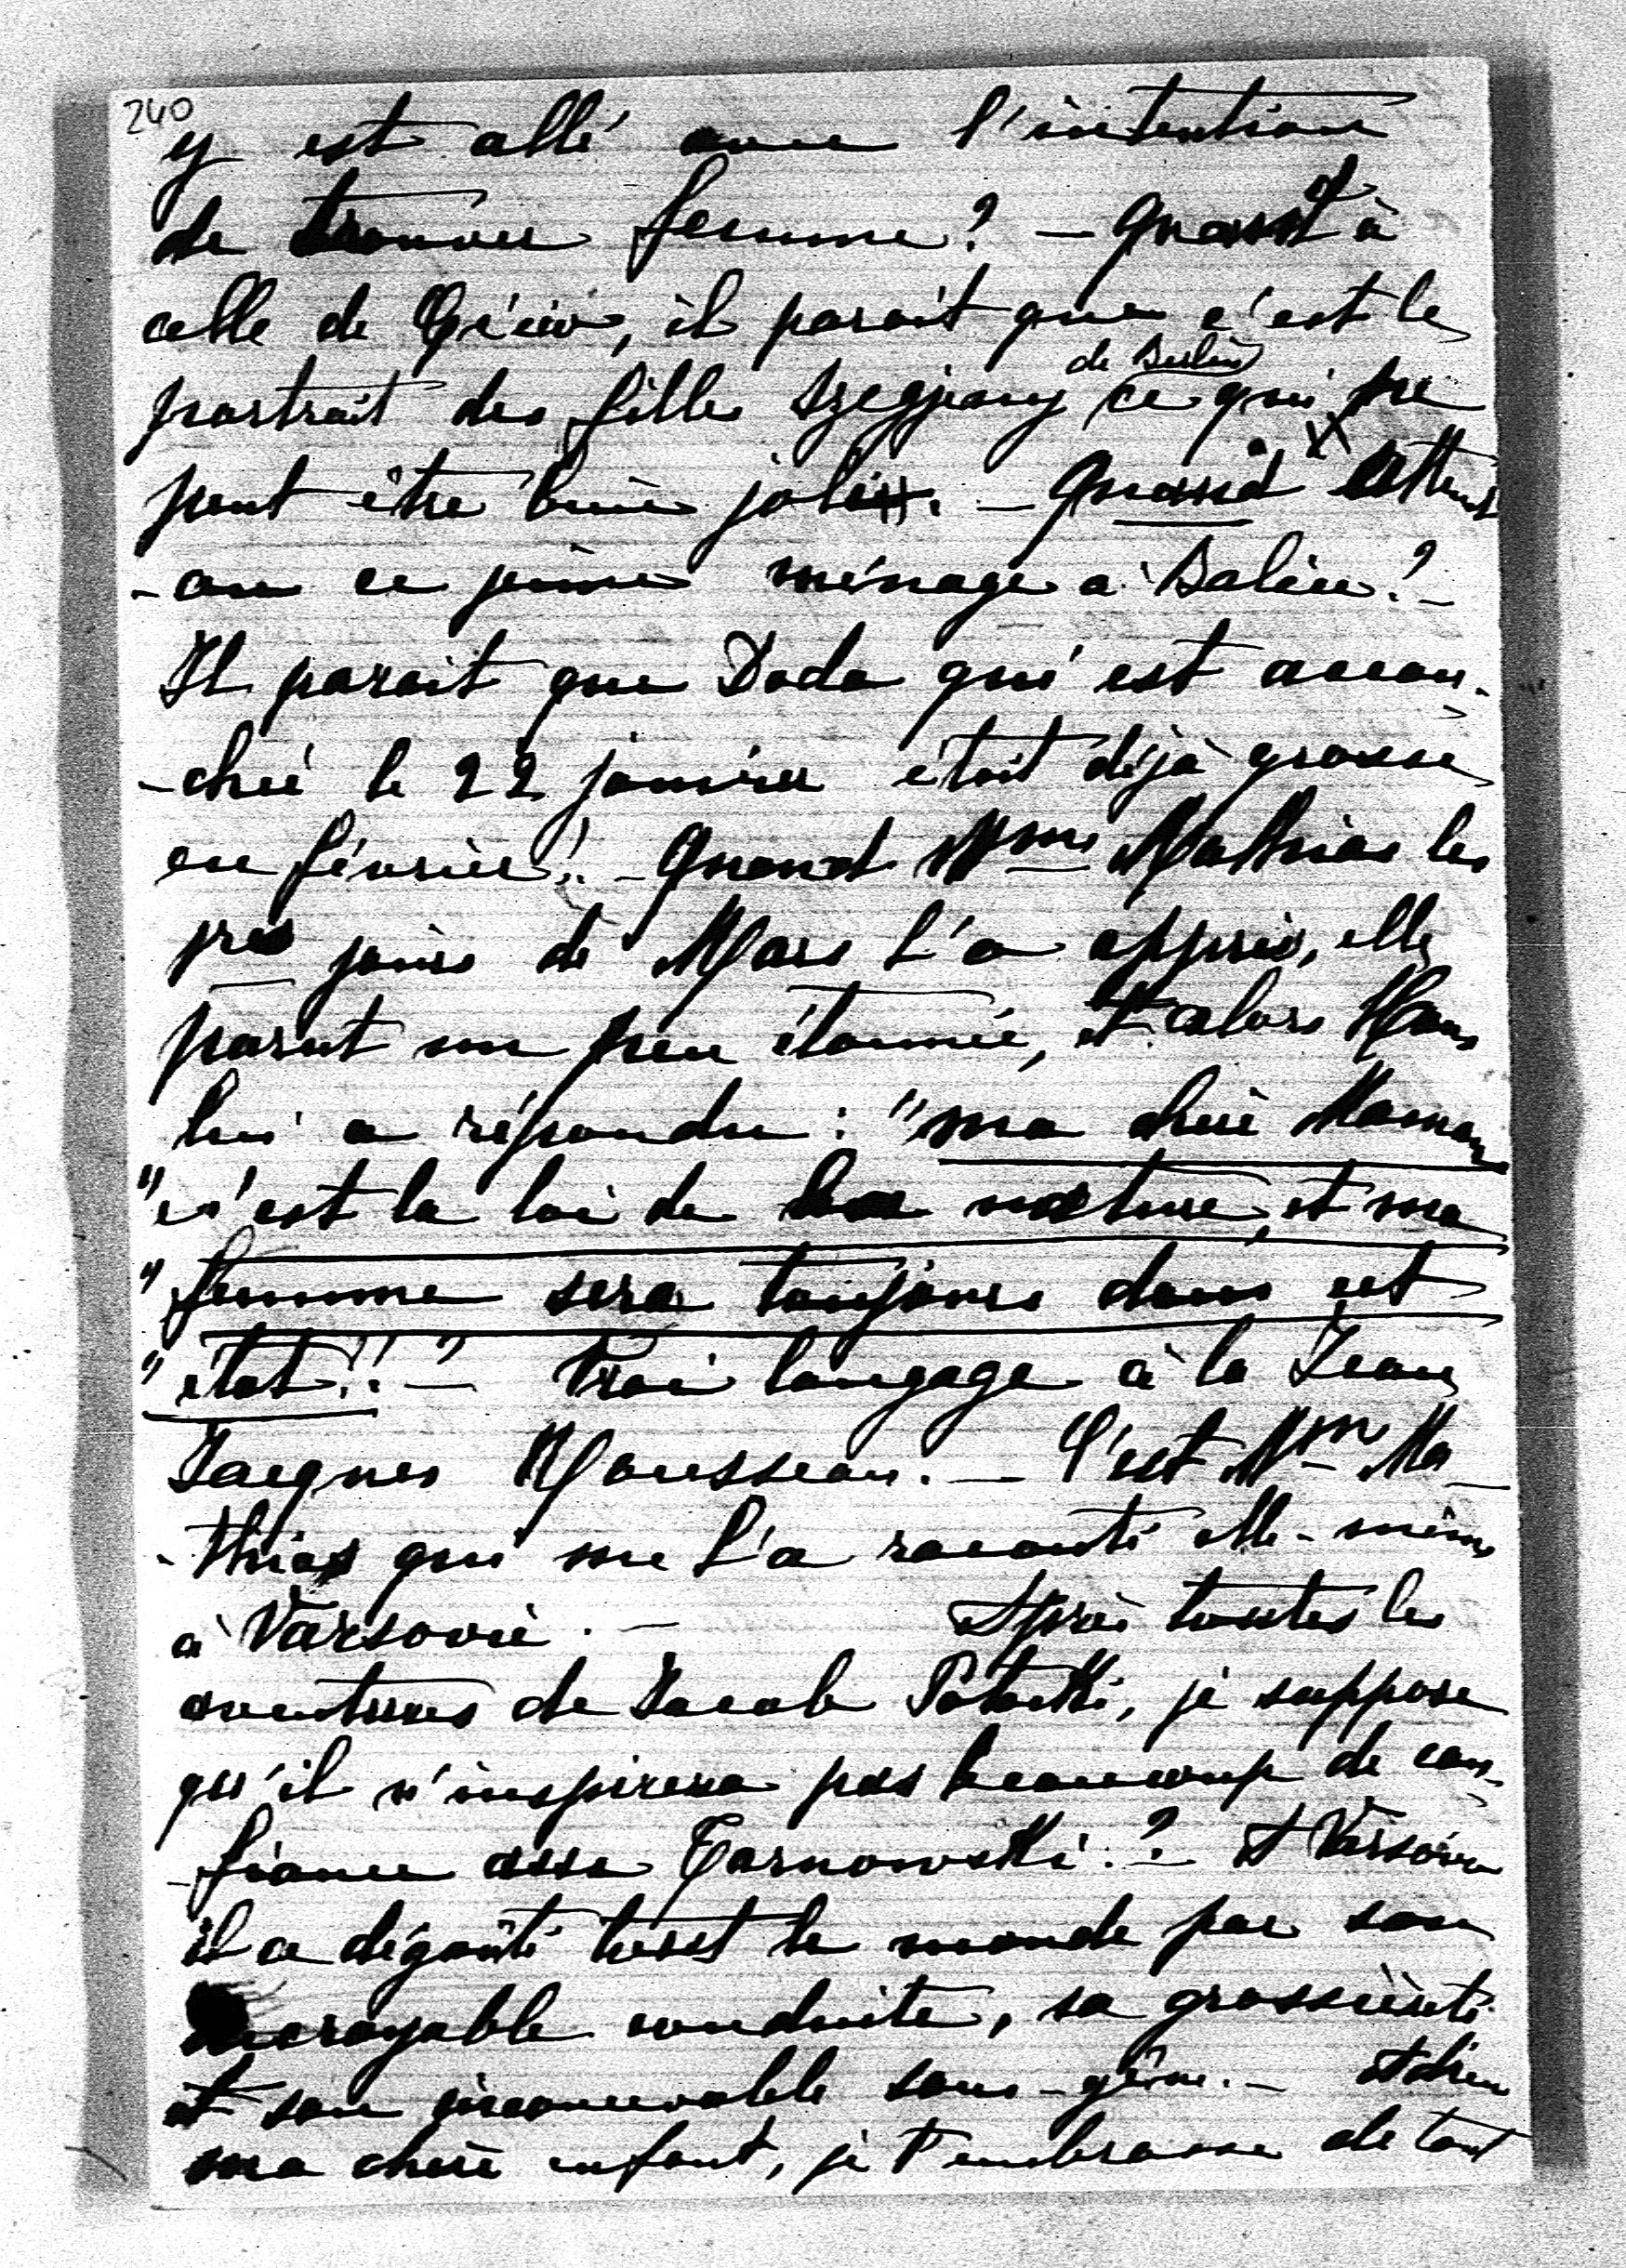 240
y est allé avec l'intention
de trouver femme? – Quant à
celle de , il parait que c'est le
de Berlin
portrait des filles Szegjeny ce qui ne
peut être bien jolie. – Quand attend
- on ce jeune ménage à Balice? –
Il parait que Doda qui est accou-
- chée le 22 janvier était déjà grosse
en février!! – Quand Mme Mathias les
pres jours de Mars l'a appris, elle
parut un peu étonnée, et alors
lui a répondu : "ma chère Maman
"c'est la loi de la nature, et ma
"femme sera toujours dans cet
"état!! – Vrai langage à la Jean
Jacques Rousseau. – C'est Mme Ma-
- thias qui me l'a raconté elle-même
à Varsovie. – Après toutes les
aventures de Jacob Potocki, je suppose
qu'il n'inspirera pas beaucoup de con-
- fiance aux Tarnowski? – A Varsovie
il a dégoûté tout le monde par son
incroyable conduite, sa grossièreté
et son inconcevable sans-gêne. – Adieu
ma chère enfant, je t'embrasse de tout